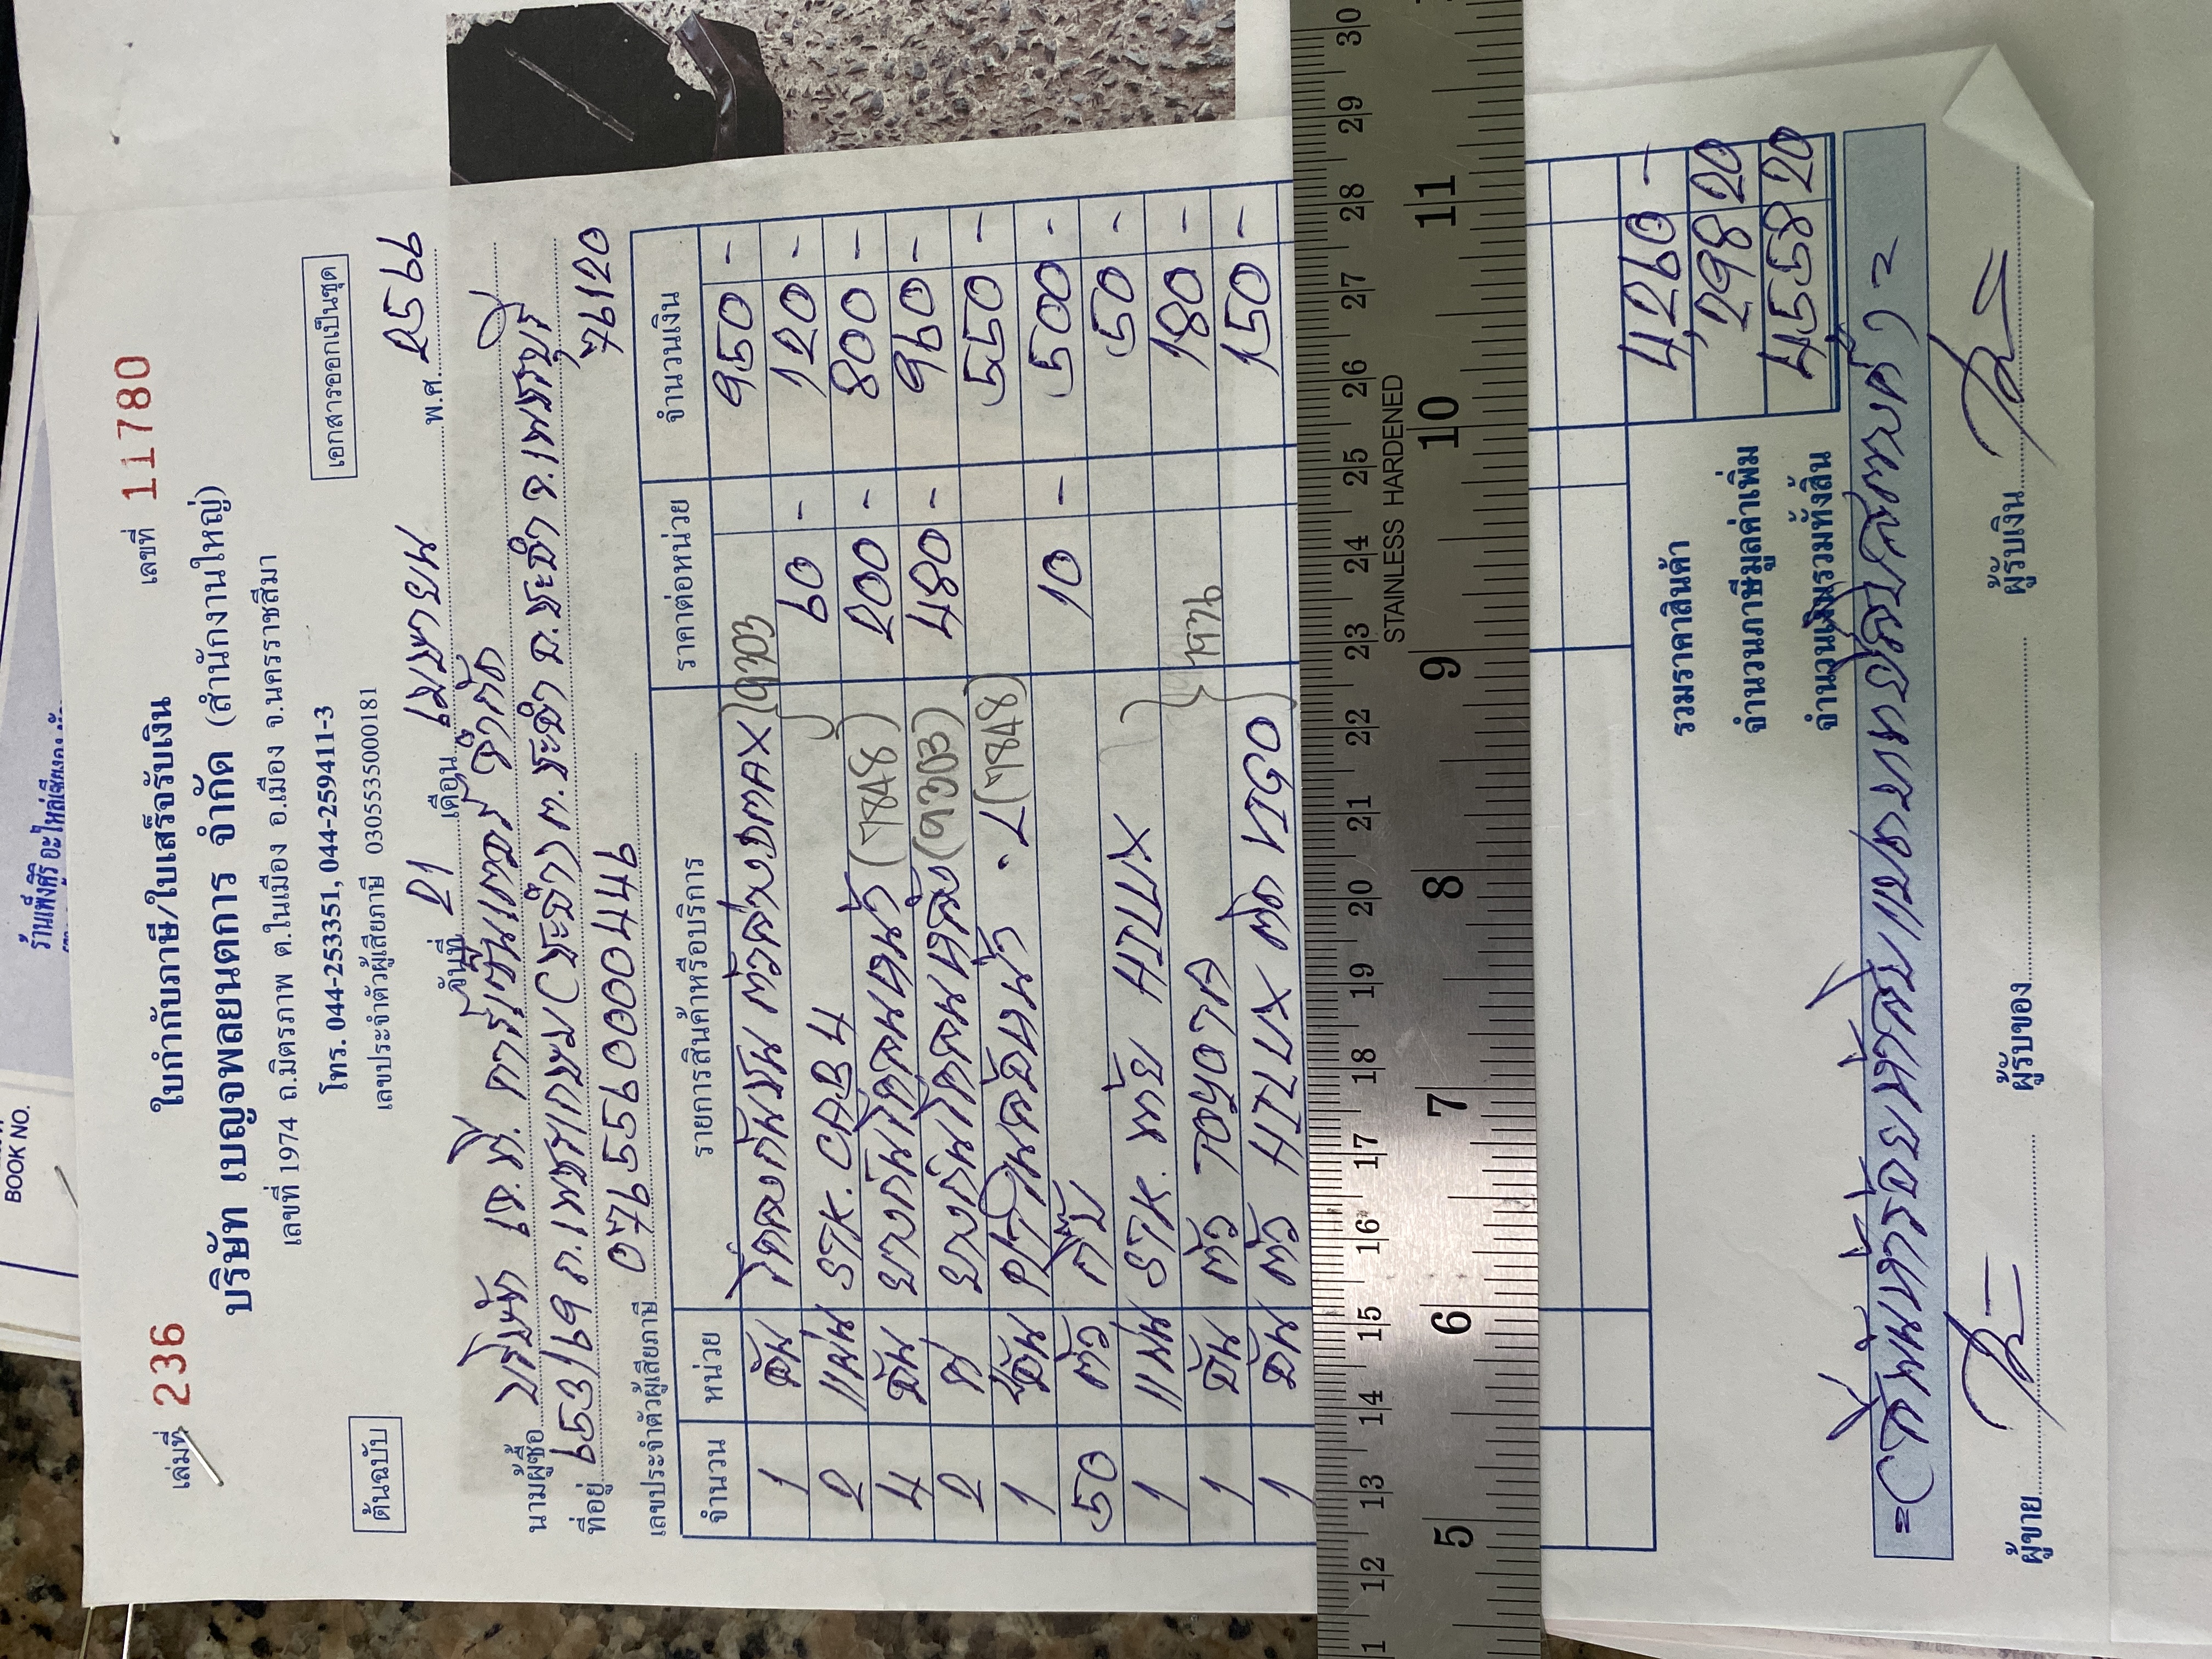 ร้านเพ็งศิริ อะไหล่เชียงกง
BOOK NO.
เล่มที่ 236
ใบกำกับภาษี/ใบเสร็จรับเงิน
เลขที่ 11780
บริษัท เบญจพลยนตการ จำกัด (สำนักงานใหญ่)
เลขที่ 1974 ถ.มิตรภาพ ต.ในเมือง อ.เมือง จ.นครราชสีมา
โทร. 044-253351, 044-259411-3
เลขประจำตัวผู้เสียภาษี 0305535000181
ต้นฉบับ
เอกสารออกเป็นชุด
วันที่ 21 เดือน เมษายน พ.ศ. 2566
นามผู้ซื้อ บริษัท เจ.พี. คาร์เซ็นเตอร์ จำกัด
ที่อยู่ 653/69 ถ.เพชรเกษม (ชะอำ) ต.ชะอำ อ.ชะอำ จ.เพชรบุรี
76120
เลขประจำตัวผู้เสียภาษี 0765560000446
จำนวน หน่วย รายการสินค้าหรือบริการ ราคาต่อหน่วย จำนวนเงิน
1 อัน โครงกันชน ตัวล่าง DMAX 9303 950 -
2 แผ่น STK. CAB4 60 - 120 -
4 อัน (7848) 200 - 800 -
2 (9303) 480 - 960 -
1 อัน (7848) 550 -
50 ตัว กิ๊บ 10 - 500 -
1 แผ่น STK. HILUX 50 -
1 อัน ตัว TOYOTA 180 -
1 อัน ตัว HILUX VIGO 150 -
STAINLESS HARDENED
12 13 14 15 16 17 18 19 20 21 22 23 24 25 26 27 28 29 30
5 6 7 8 9 10 11
รวมราคาสินค้า 4,260 -
จำนวนภาษีมูลค่าเพิ่ม 298 20
จำนวนเงินรวมทั้งสิ้น 4,558 20
= (สี่พันห้าร้อยห้าสิบแปดบาทยี่สิบสตางค์) =
ผู้ขาย ผู้รับของ ผู้รับเงิน